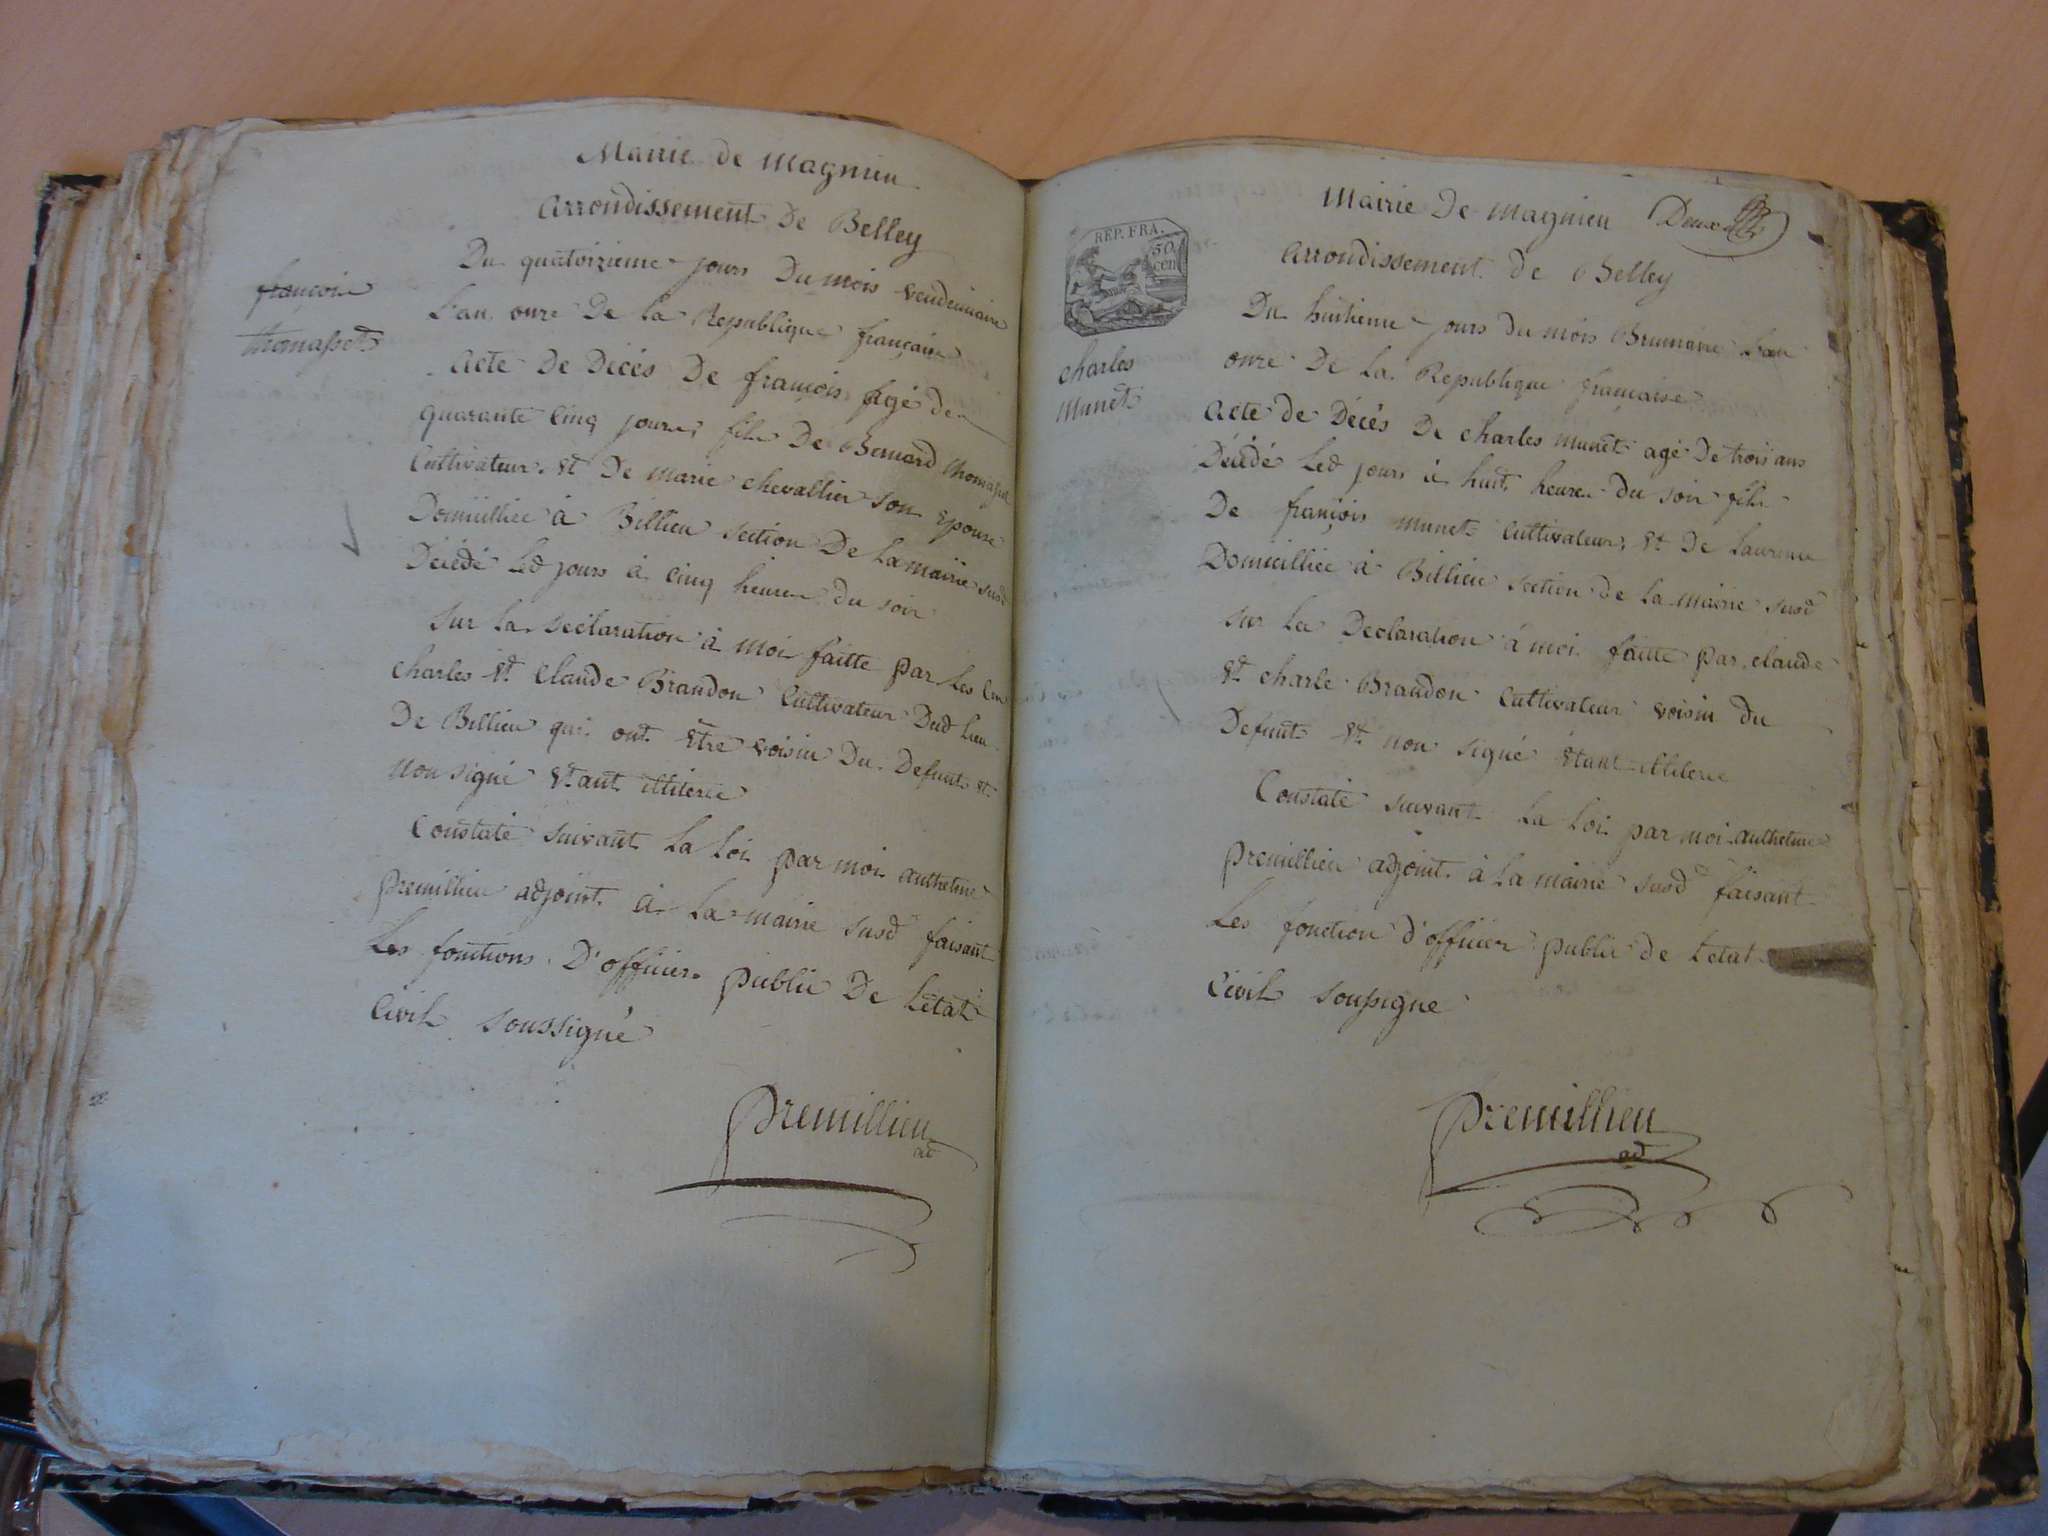 Mairie de Magnieu
Arrondissement De Belley
Du quatorzieme jours Du mois vendemiaire
L'an onze De La Republique française
françois
thomasset
Acte De Décés De françois agé de
quarante Cinq jours, fils De Bernard thomasset
Cultivateur. Et De Marie chevallier son Epouse
Domicilliée à Billieu section De La mairie susd
Décédé Led jours à Cinq heures du soir
sur La declaration à moi faitte par Les
charles Et Claude Brandon Cultivateur Dud Lieu
De Billieu qui ont Etre voisin Du Defunt et
non signé Etant illiteré
Constaté suivant La Loi par moi anthelme
premillieu adjoint à La mairie susd faisant
Les fonctions D'officier public De Létat
Civil soussigné
premillieu
ad
Mairie De magnieu Deux
REP. FRA.
50
cen
Arrondissement de Belley
Du huitieme jours du mois Brumaire Lan
onze De La Republique française
charles
Munet
Acte de Décés De charles Munet agé De trois ans
Décédé Led jours à huit heures du soir fils
De françois Munet Cultivateur, Et De Laurence
Domicilliée à Billieu section de la mairie susd
sur La Declaration à moi faitte par claude
Et charle Brandon Cultivateur voisin du
Defunt Et non signé Etant illiteré
Constaté suivant La Loi par moi anthelme
premillieu adjoint à La mairie susd faisant
Les fonction d'officier public de Létat
Civil soussigne
premillieu
ad